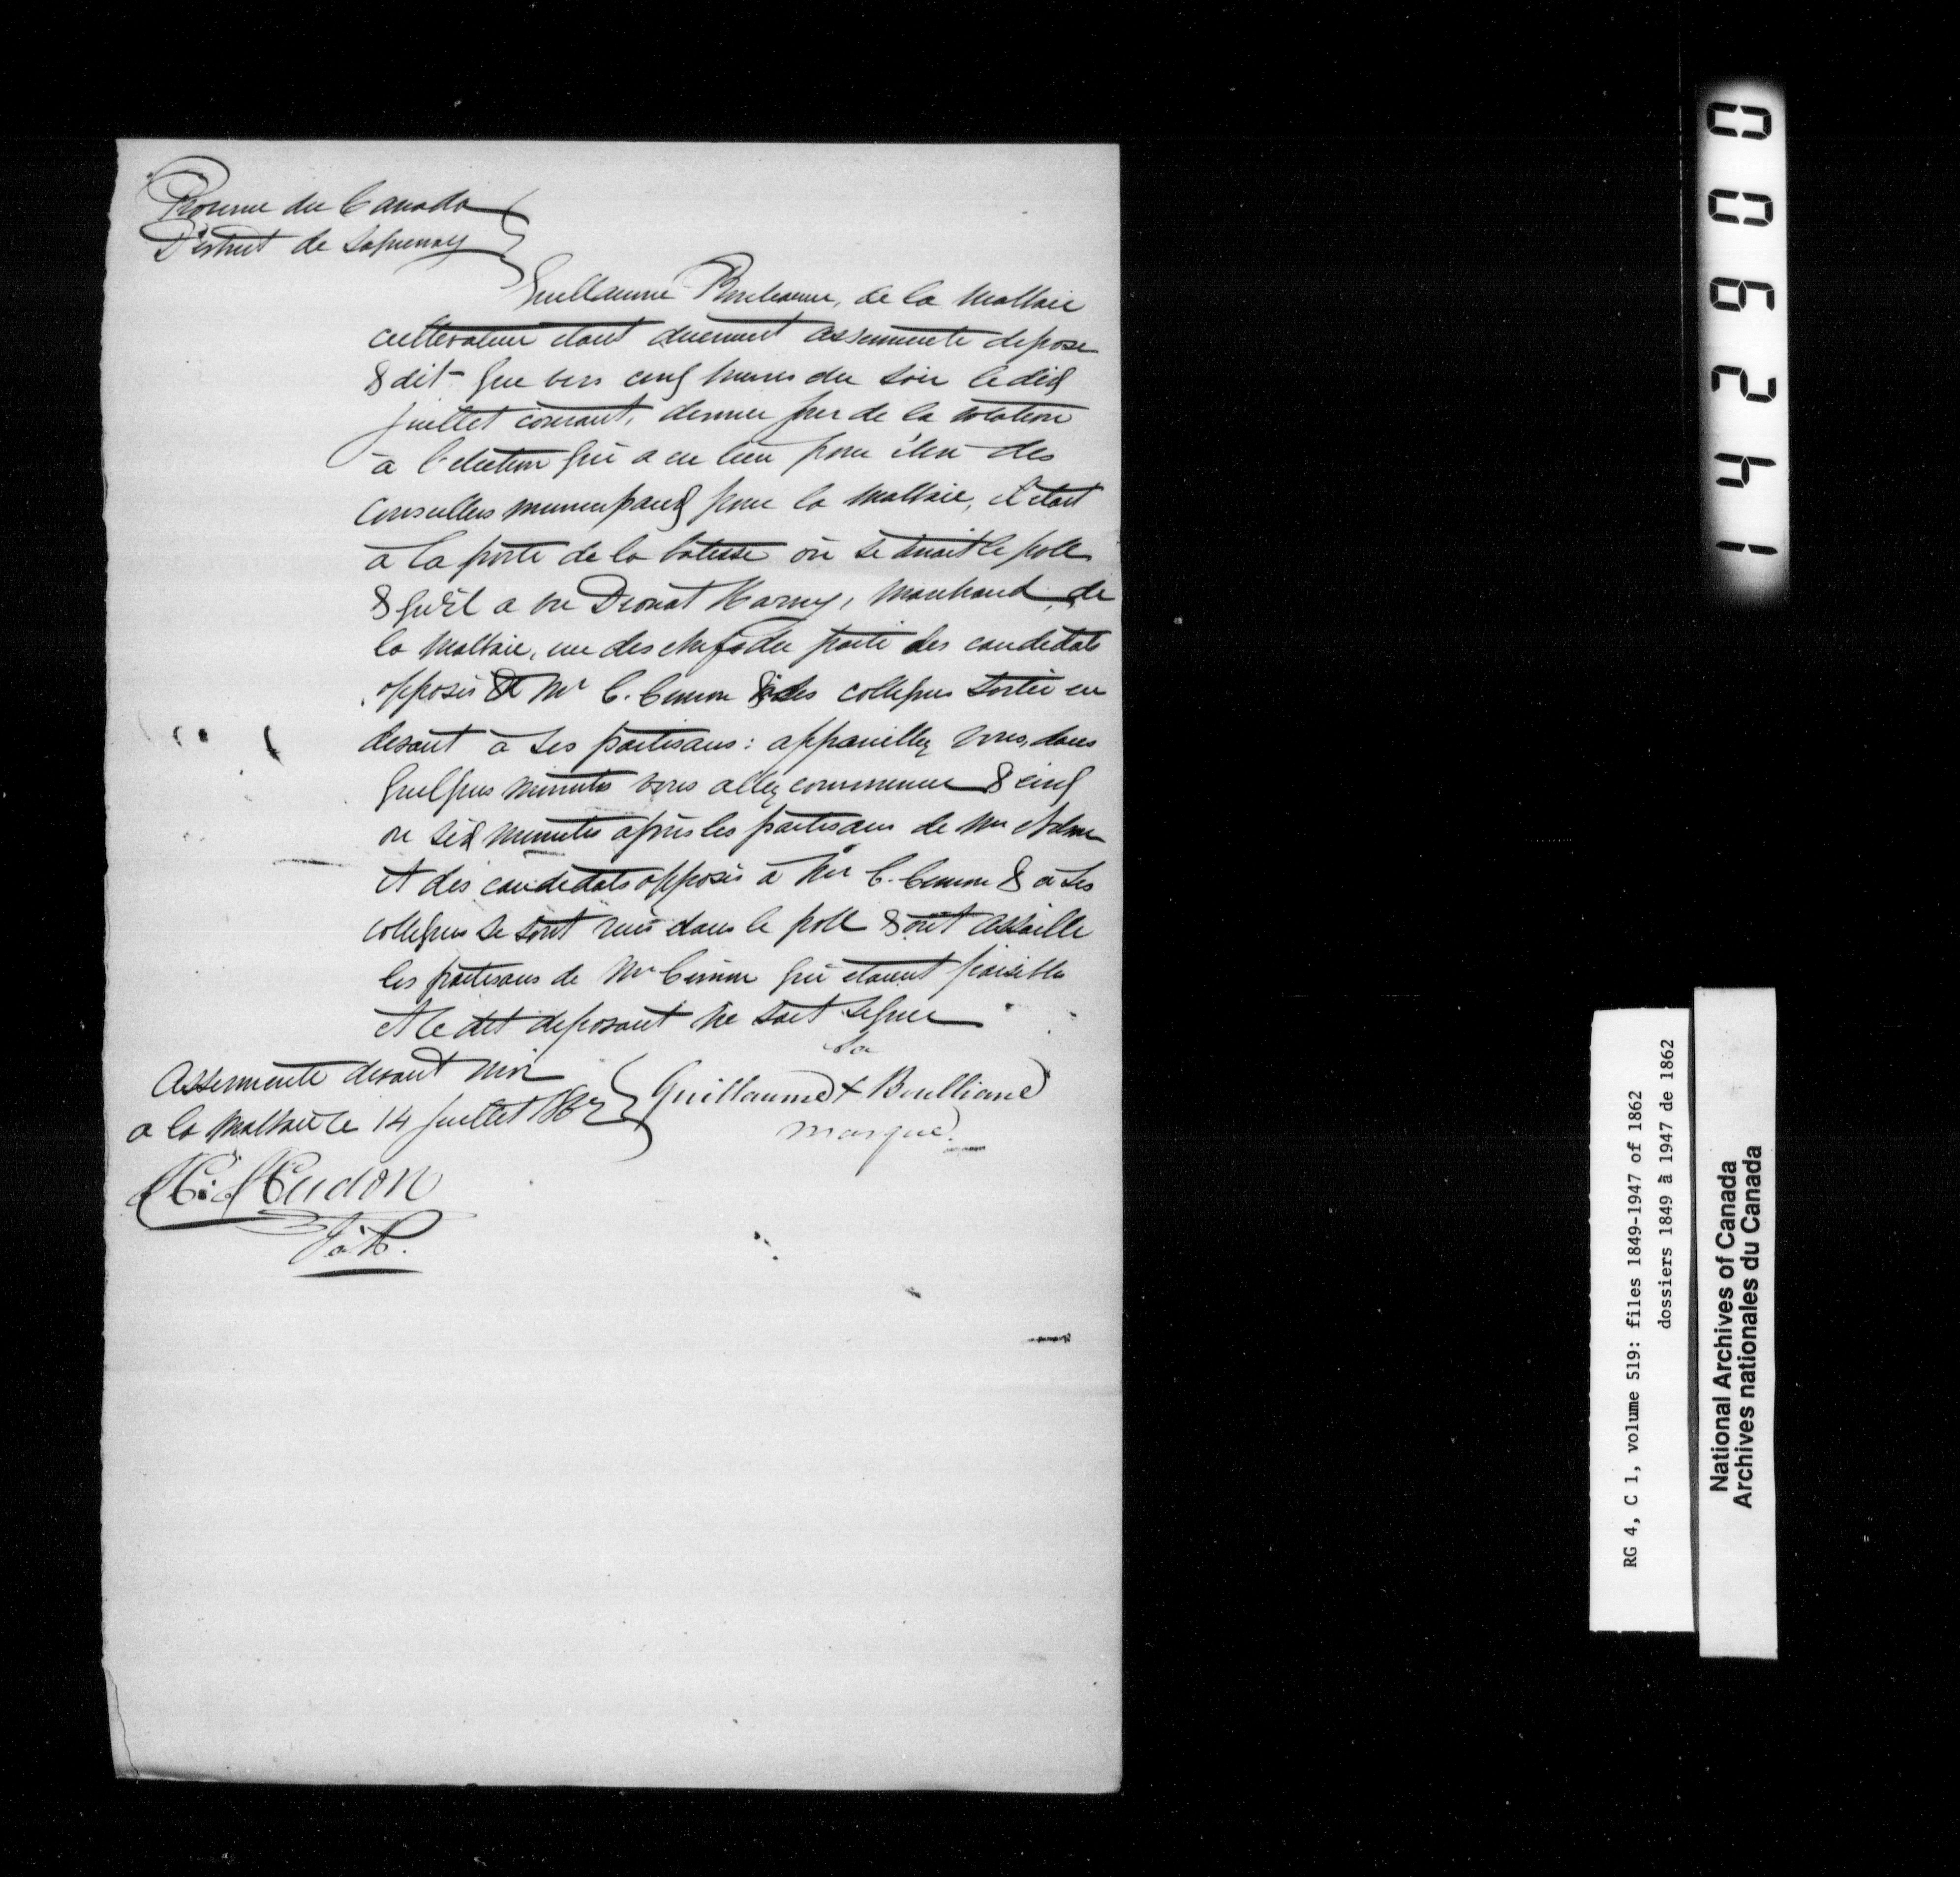 Province du Canada
District de Saguenay
Guillaume Boulianne, de la Malbaie
cultivateur étant dûement assermenté dépose
& dit que vers cinq heures du soir le dix
Juillet courant, dernier jour de la votation
à l'élection qui a eu lieu pour élire des
Conseillers municipaux pour la Malbaie, il était
à la porte de la bâtisse où se tenait le poll
& qu'il a vu Deonat Harvey, marchand de
la Malbaie, un des chefs du parti des candidats
opposés à Mr C. Cimon & à ses collègues sortir en
disant à ses partisans : appareillez vous, dans
quelques minutes vous allez commencer & cinq
ou six minutes après les partisans de Mr
et des candidats opposés à Mr C. Cimon & à ses
collègues se sont rués dans le poll & ont assailli
les partisans de Mr Cimon qui étaient paisibles
et le dit déposant ne sait signer
Assermenté devant moi
à la Malbaie ce 14 Juillet 1862
sa
Guillaume + Boulliane
marque.
H. Hudon
J. P.
RG 4, C 1, volume 519: files 1849-1947 of 1862
dossiers 1849 à 1947 de 1862
National Archives of Canada
Archives nationales du Canada
006241